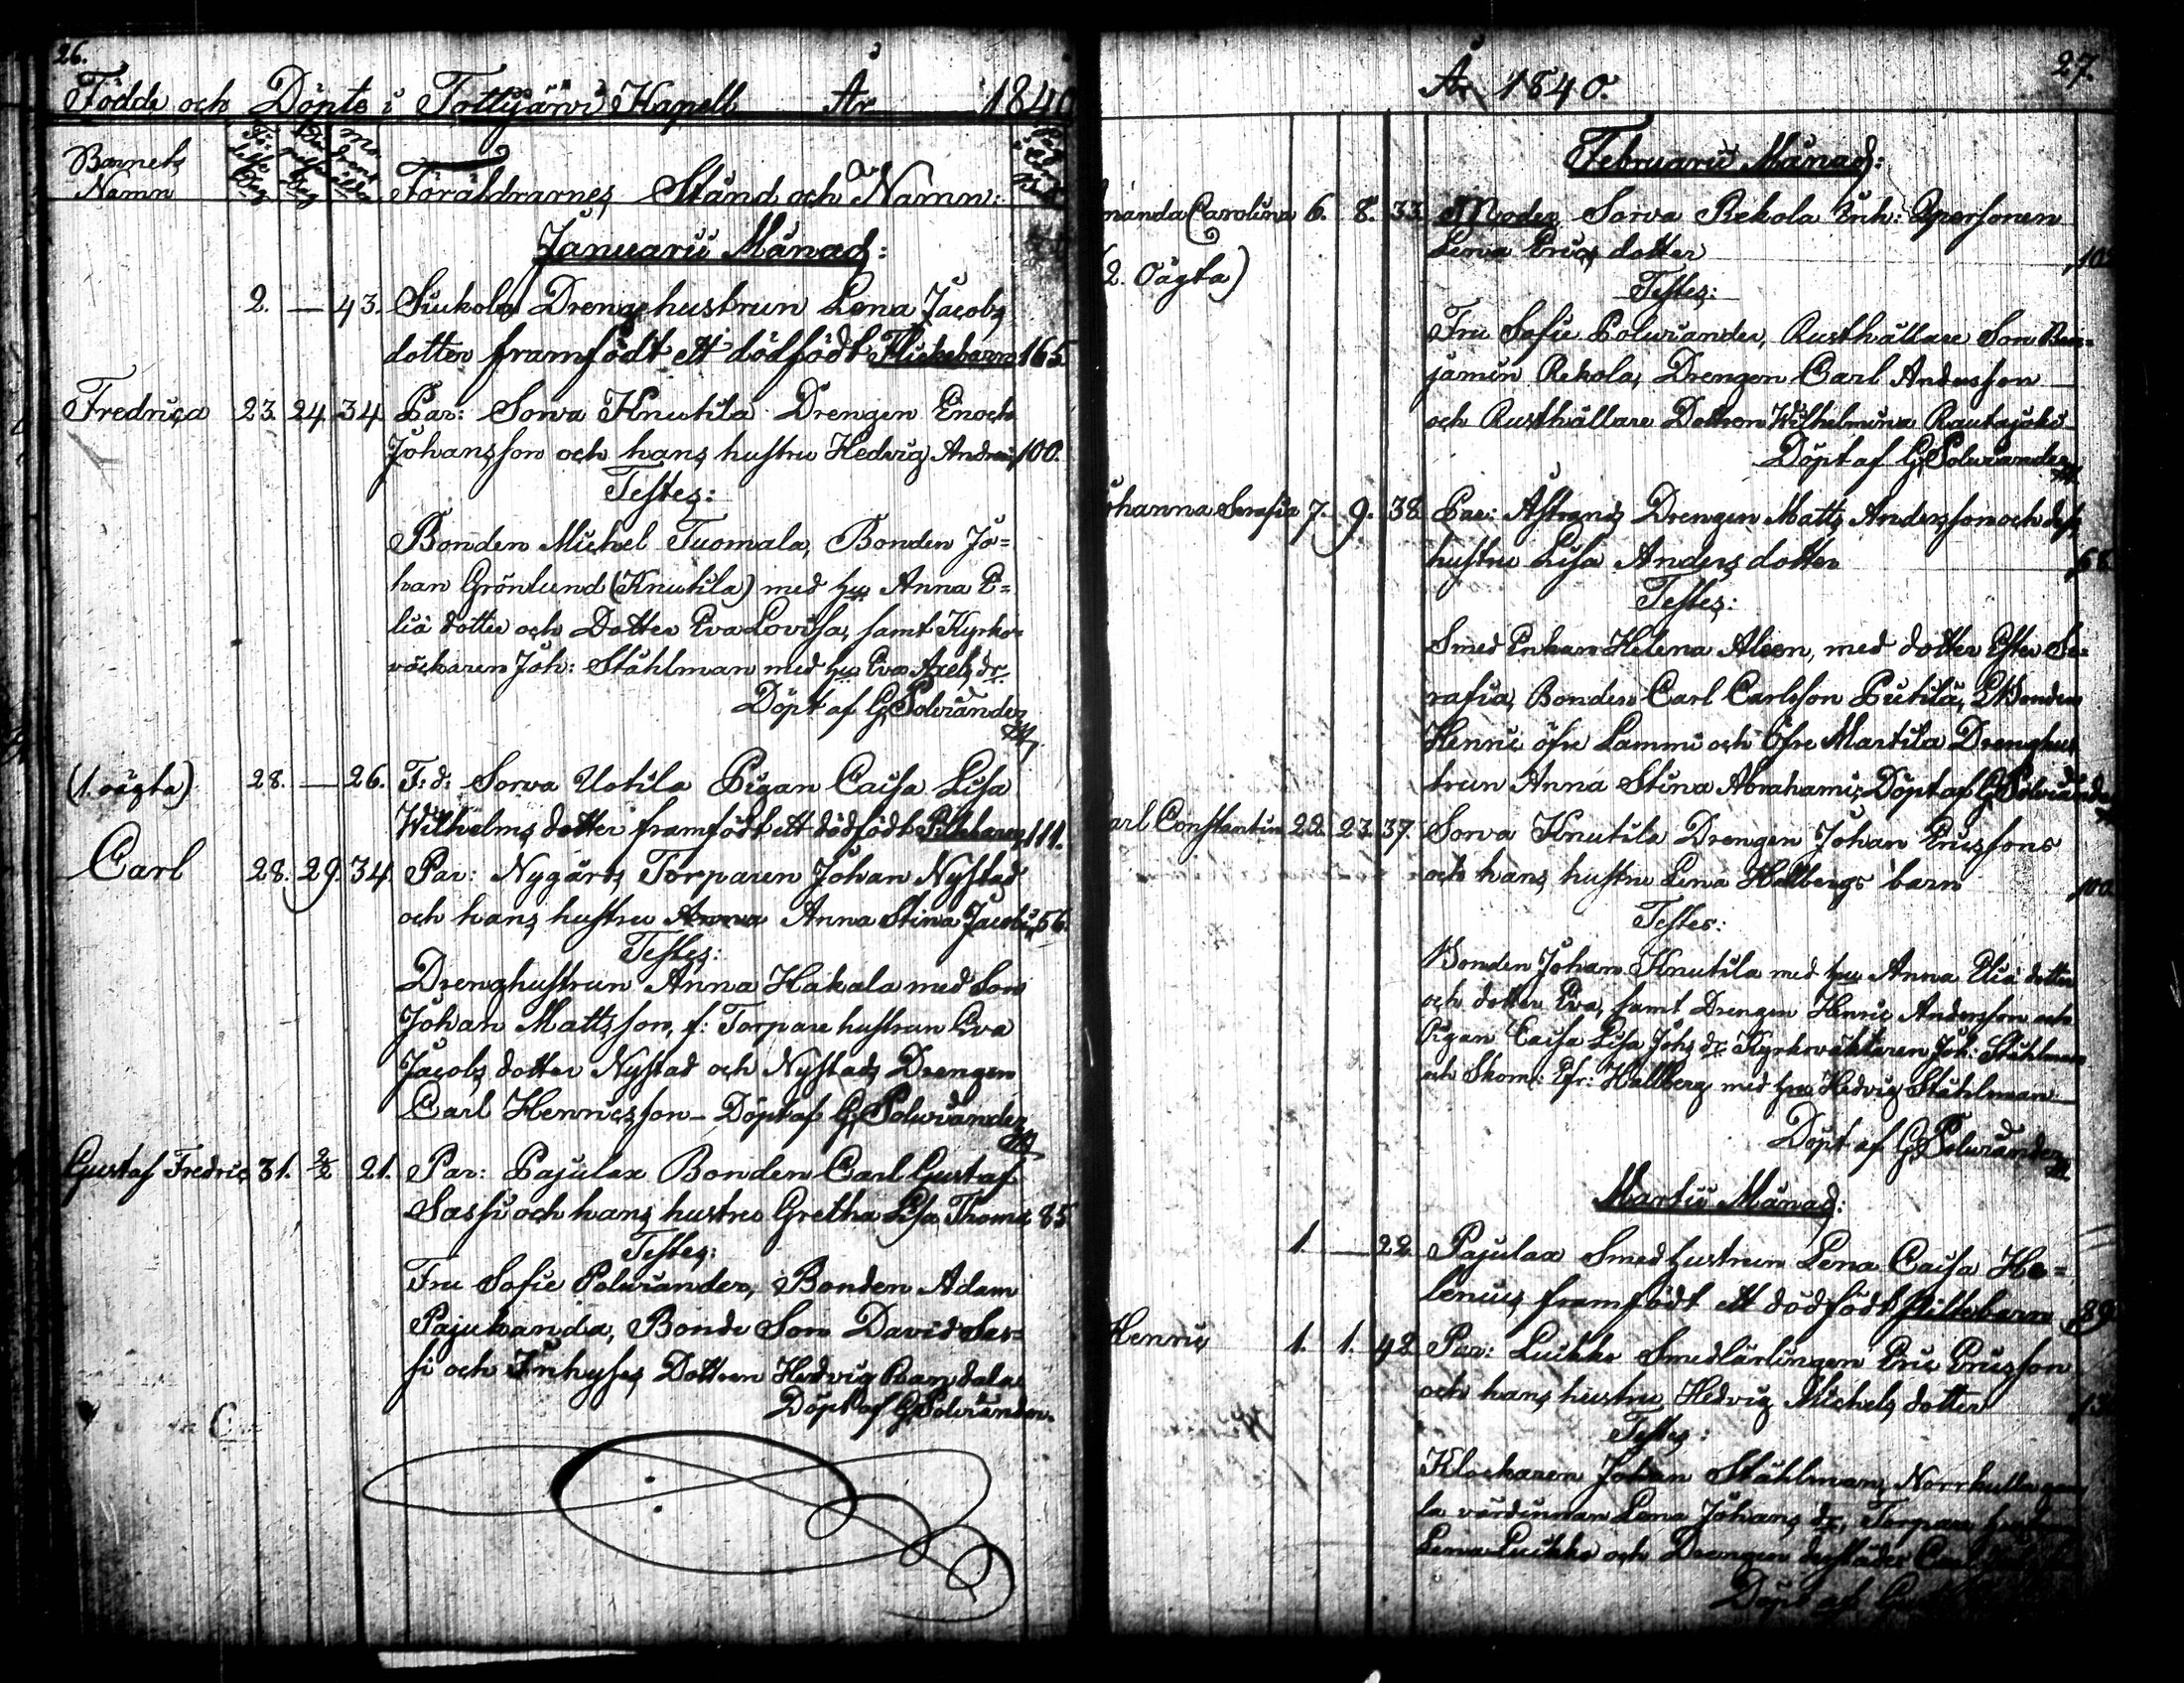 26.
Födde och Döpte i Tottijärvi Kapell År 1840
Barnets Namn
Föräldrarnes Stånd och Namn:
Januarii Månad:
2. — 43. Siukola Drengehustrun Lena Jacobs
dotter framfödt ett dödfödt Flickebarn 165.
Fredrica 23. 24. 34. Par: Sorva Knutila Drengen Enoch
Johansson och hans hustru Hedvig Andreæ 100.
Testes:
Bonden Michel Tuomala, Bonden Jo=
han Grönlund (Knutila) med hu Anna E=
liæ dotter och Dotter Eva Lovisa, samt Kyrko=
väcktaren Joh: Ståhlman med hu Eva Axels dr
Döpt af G Polviander
(1. oägta) 28. — 26. F:d: Sorva Uotila Pigan Caisa Lisa
Wilhelms dotter framfödt ett dödfödt 111.
Carl 28. 29. 34. Par: Nygårds Torparen Johan Nystad
och hans hustru Anna Anna Stina Jacobi 56.
Testes:
Drenghustrun Anna Hakala med Son
Johan Mattsson, f: Torpare hustrun Eva
Jacobs dotter Nystad och Nystads Drengen
Carl Henricsson — Döpt af G Polviander
Gustaf Fredric 31. 2/2 21. Par: Pajulax Bonden Carl Gustaf
Sassi och hans hustru Gretha Lisa Thomæ 85
Testes:
Fru Sofie Polviander, Bonden Adam
Pajukanda, Bonde Son David Sas=
si och Inhyses Dottren Hedvig
Döpt af G Polviander
27.
År 1840.
Februarii Månad:
manda Carolina 6. 8. 33. Moder Sorva Rekola Inh: Qpersonen
Lena Erics dotter 102
(2. Oägta)
Testes:
Fru Sofie Polviander, Rusthållare Son Ben=
jamin Rekola, Drengen Carl Andersson
och Rusthållare Dottren Wilhelmina Rautajoki
Döpt af G Polviander
ohanna Serafia 7. 9. 38. Par: Astrands Drengen Matts Andersson och dess
hustru Lisa Anders dotter 68.
Testes:
Smed Enkan Helena Aleen, med dotter Ester Se=
rafia, Bonden Carl Carlsson Pietilä, Bonden
Henric öfre Lammi och Öfre Martila Drenghus
trun Anna Stina Abrahami, Döpt af G Polviander
arl Constantin 22. 23. 37. Sorva Knutila Drengen Johan Ericssons
och hans hustru Lena Hallbergs barn 100.
Testes:
Bonden Johan Knutila med hu Anna Eliæ dotter
och dotter Eva, samt Drengen Henric Andersson och
Pigan Caisa Lisa Johs dr Kyrkoväktaren Joh: Ståhlman
och Skom: Hallberg med hu Hedvig Ståhlman
Döpt af G Polviander
Martii Månad:
1. — 22. Pajulax Smedhustrun Lena Caisa He=
lenius framfödt ett dödfödt Piltebarn 89
Henric 1. 1. 42. Par: Luikko Smedlärlingen Eric Ericsson
och hans hustru Hedvig Michels dotter
Testes:
Klockaren Johan Ståhlman, Norrkulla gam
la värdinnan Lena Johans dr, Torpare
Lena Luikko och Drengen dersädes Carl
Döpt af G